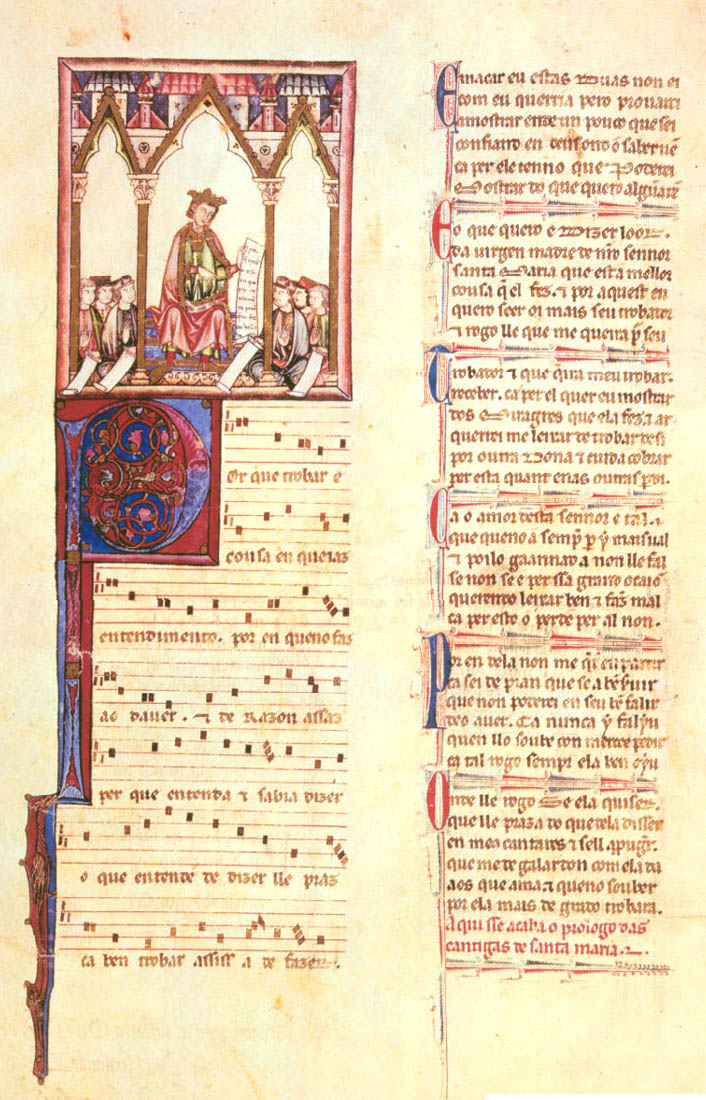 Or que trobar e
cousa en que iaz
entendimento. por en queno faz
ao dauer. & de razon assaz
per que entenda & sabia dizer
o que entende de dizer lle praz
ca ben trobar assi ss a de fazer.
E macar eu estas duas non ei
com eu querria pero prouarei
a mostrar ende un pouco que sei
confiand en deus ond o saber uen
ca per ele tenno que poderei
mostrar do que quero alguna ren
E o que quero e dizer loor.
da uirgen madre de nro sennor
santa maria que est a mellor
cousa que el fez. & por aquest eu
quero seer oi mais seu trobador
& rogo lle que me queira por seu
Trobador & que queira meu trobar.
receber. ca per el quer eu mostrar
dos miragres que ela fez. & ar
querrei me leixar de trobar desi
por outra dona & cuid a cobrar
per esta quant enas outras perdi.
Ca o amor desta sennor e tal.
que queno a sempr per y mais ual
& poilo gaannad a non lle fal
se non se e per ssa grand ocaion
querendo leixar ben & fazer mal
ca per esto o perde per al non.
Por en dela non me quer eu partir
ca sei de pran que se a ben seruir
que non poderei en seu ben falir
deo auer. ca nunca y faliu
quen llo soube con merce pedir
ca tal rogo sempr ela ben oyu
Onde lle rogo se ela quiser.
que lle praza do que dela disser
en meus cantares & se ll aprouguer.
que me de galardon com ela da
aos que ama. & queno souber
por ela mais de grado trobara.
Aqui sse acaba o prologo das
cantigas de santa maria.